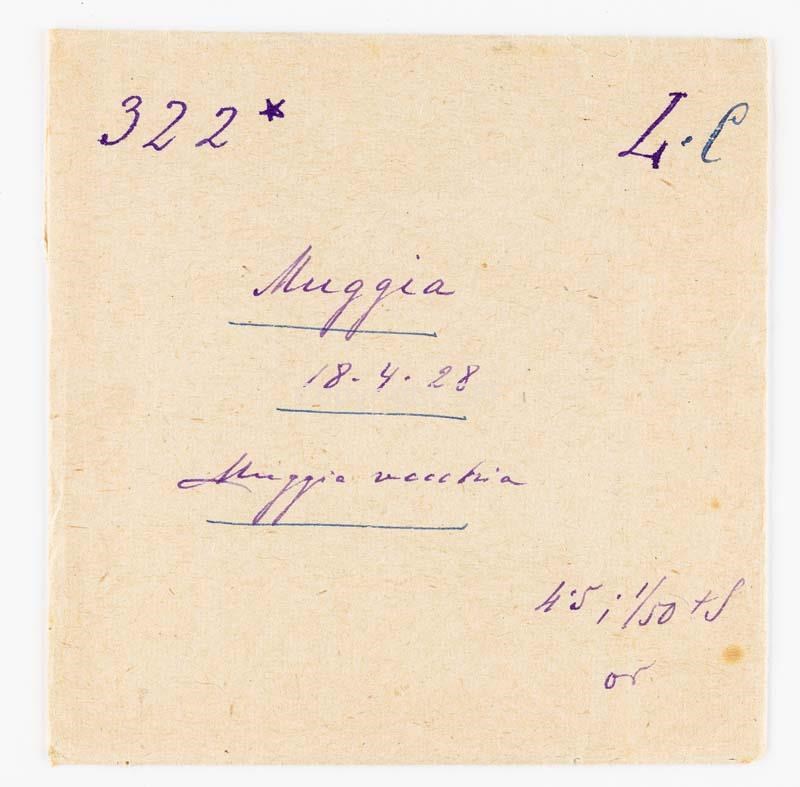 322* L.C
Muggia
18.4.28
Muggia vecchia
4.5; 1/50 +S
or